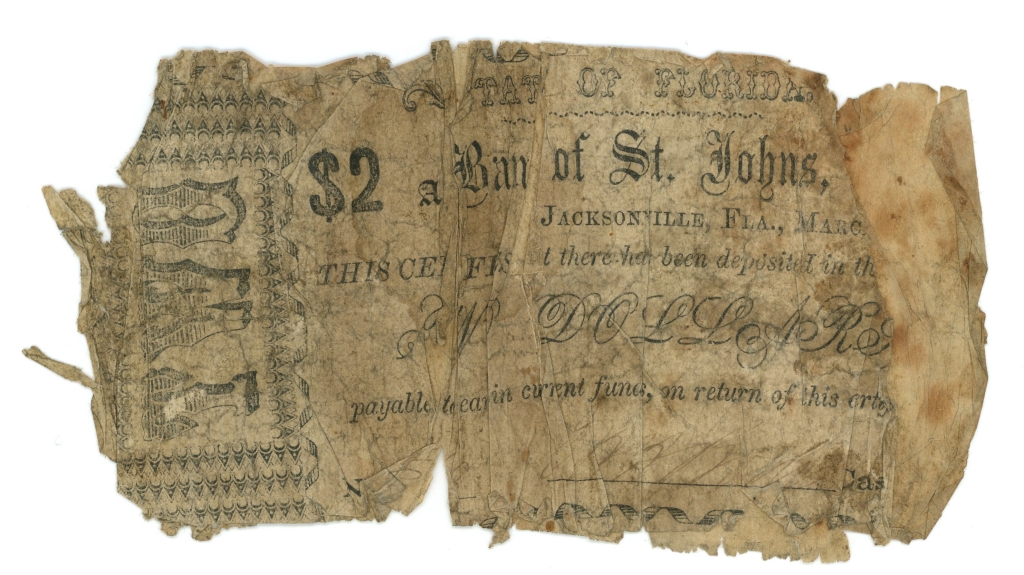 TAT OF FLORIDA.
$2 A Ban of St. Johns,
JACKSONVILLE, FLA., MARC
THIS CE FIS t there has been deposited in th
DOLLARS
payable to bear in current funds, on return of this
Cas
TWO